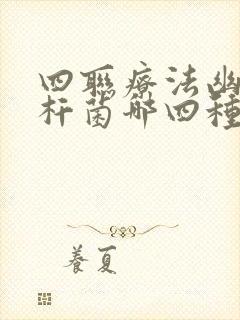 四聯療法幽
杆菌哪四種
養夏